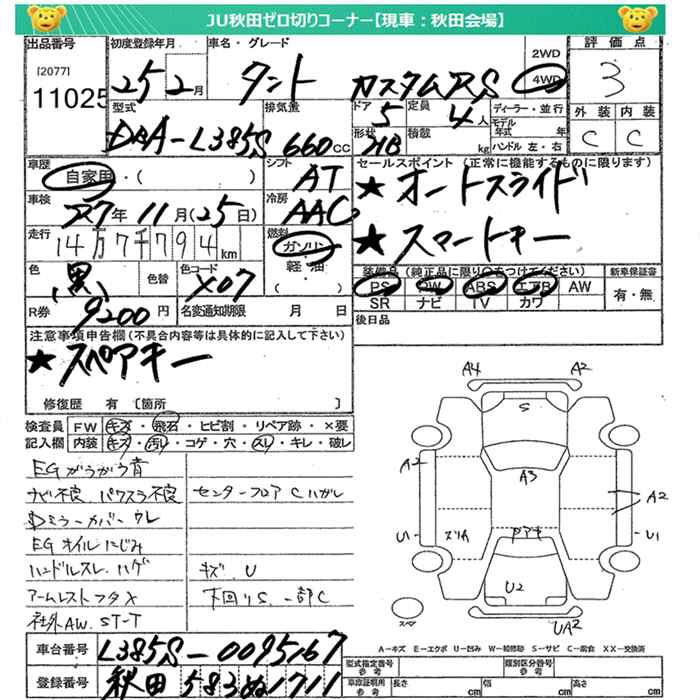 JU秋田ゼロ切りコーナー【現車：秋田会場】
出品番号 初度登録年月 車名・グレード 評価点
[2077] 25 2月 タント カスタムRS 2WD 4WD 3
11025
型式 排気量 ドア 5 定員 4人 ディーラー・並行 外装 内装
DBA-L385S 660cc 形状 HB 積載 kg モデル年式 年 ハンドル 左・右 C C
車歴 自家用・( ) シフト AT セールスポイント (正常に機能するものに限ります)
★オートスライド
車検 27年11月(25日) 冷房 AAC
★スマートキー
走行 14万7千794km 燃料 ガソリン
軽・油
( )
色 (黒) 色替 色コード X07
装備品(純正品に限り○をつけてください) 新車保証書
PS PW ABS エアB AW 有・無
SR ナビ TV カワ
R券 9200円 名変通知期限 月 日 後日品
注意事項申告欄(不具合内容等は具体的に記入して下さい)
★スペアキー
修復歴 有 [箇所 ]
検査員 FW キズ・飛石・ヒビ割・リペア跡・×要
記入欄 内装 キズ・汚レ・コゲ・穴・スレ・キレ・破レ
EGガラガラ音
ナビ不良 パワスラ不良 センターフロアCハガレ
Dミラーカバーウレ
EGオイルにじみ
ハンドルスレ、ハゲ キズ、U
アームレストフタX 下回りS、一部C
社外AW、ST-T
A4 A2
S
A2 A3 A2
U1 スリA アキ U1
U2
スペア UA2
A－キズ E－エクボ U－凹み W－補修跡 S－サビ C－腐食 XX－交換済
車台番号 L385S-0095167
登録番号 秋田 583ぬ1711
型式指定番号 参考 類別区分番号 参考
車庫証明用 参考 長さ cm 幅 cm 高さ cm